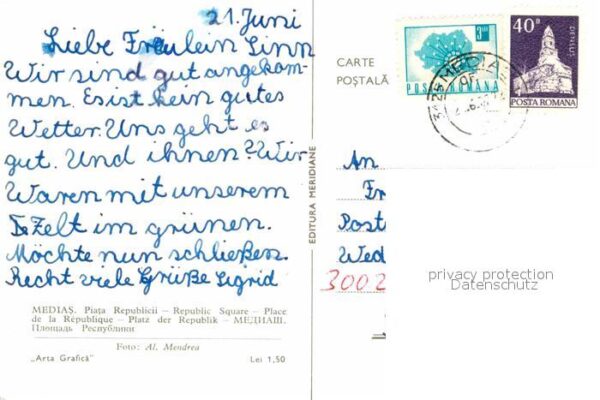 21. Juni
Liebe Fräulein Sinn
Wir sind gut angekom-
men. Es ist kein gutes
Wetter. Uns geht es
gut. Und ihnen? Wir
Waren mit unserem
Zelt im grünen.
Möchte nun schließen.
Recht viele Grüße Sigrid
MEDIAŞ. Piaţa Republicii — Republic Square — Place
de la République — Platz der Republik — МЕДИАШ.
Площадь Республики
Foto: Al. Mendrea
„Arta Grafică" Lei 1,50
EDITURA MERIDIANE
CARTE
POŞTALĂ
POSTA ROMANA
40B
DENSUŞ
POSTA ROMANA
MEDIAŞ
An
Fr
Post
Wed
3002
privacy protection
Datenschutz